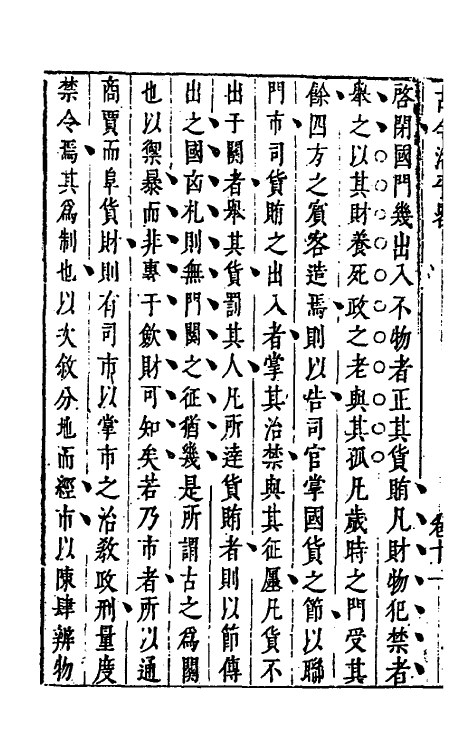 古今治平畧
卷十一
啓閉國門幾出入不物者正其貨賄凡財物犯禁者
舉之以其財養死政之老與其孤凡歲時之門受其
餘四方之賓客造焉則以告司官掌國貨之節以聯
門市司貨賄之出入者掌其治禁與其征廛凡貨不
出于關者舉其貨罰其人凡所達貨賄者則以節傳
出之國凶札則無門關之征猶幾是所謂古之爲關
也以禦暴而非專于歛財可知矣若乃市者所以通
商賈而阜貨財則有司市以掌市之治敎政刑量度
禁令焉其爲制也以次敘分地而經市以陳肆辨物